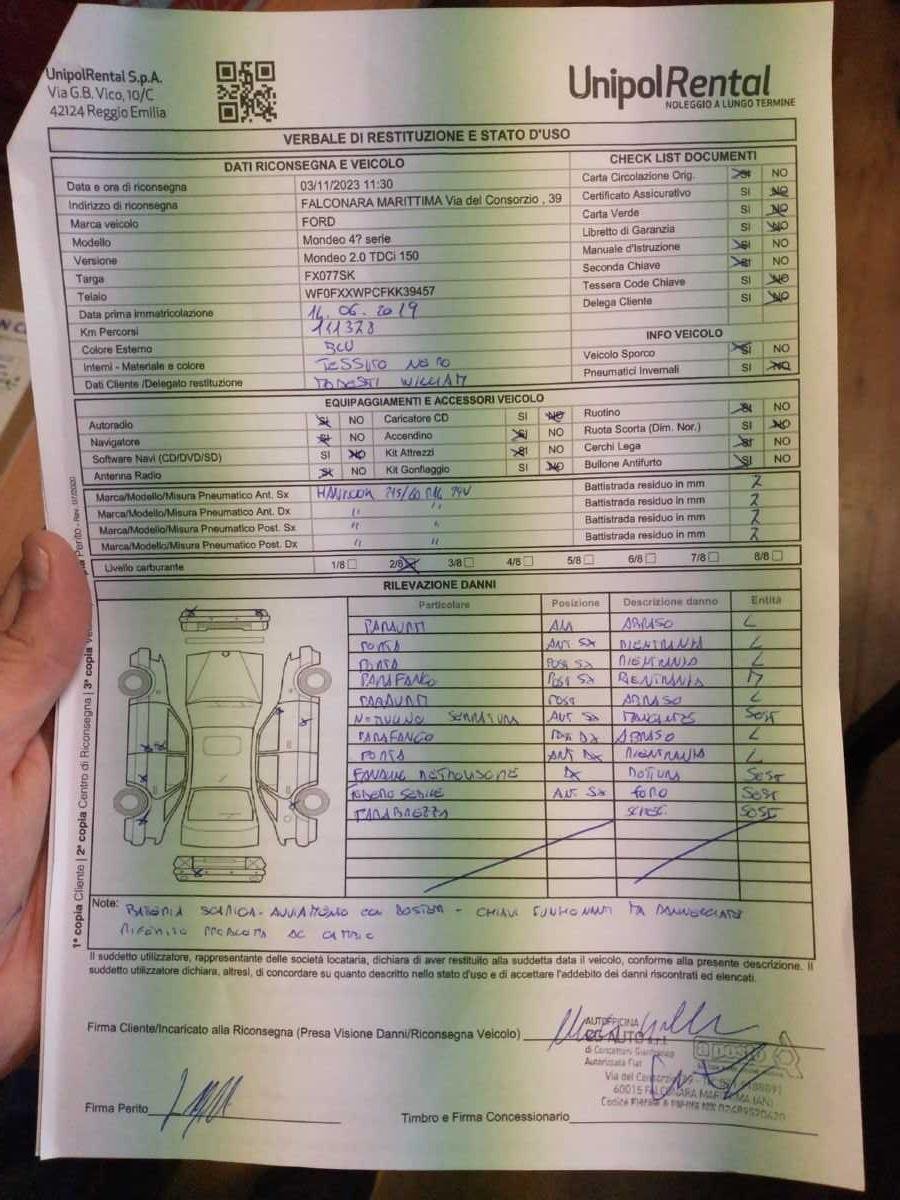 UnipolRental S.p.A.
Via G.B. Vico, 10/C
42124 Reggio Emilia
UnipolRental
NOLEGGIO A LUNGO TERMINE
VERBALE DI RESTITUZIONE E STATO D'USO
DATI RICONSEGNA E VEICOLO
Data e ora di riconsegna 03/11/2023 11:30
Indirizzo di riconsegna FALCONARA MARITTIMA Via del Consorzio , 39
Marca veicolo FORD
Modello Mondeo 4? serie
Versione Mondeo 2.0 TDCi 150
Targa FX077SK
Telaio WF0FXXWPCFKK39457
Data prima immatricolazione 14.06.2019
Km Percorsi 111378
Colore Esterno BLU
Interni - Materiale e colore TESSUTO NERO
Dati Cliente /Delegato restituzione WILLIAM
CHECK LIST DOCUMENTI
Carta Circolazione Orig. SI NO
Certificato Assicurativo SI NO
Carta Verde SI NO
Libretto di Garanzia SI NO
Manuale d'Istruzione SI NO
Seconda Chiave SI NO
Tessera Code Chiave SI NO
Delega Cliente SI NO
INFO VEICOLO
Veicolo Sporco SI NO
Pneumatici Invernali SI NO
EQUIPAGGIAMENTI E ACCESSORI VEICOLO
Autoradio SI NO Caricatore CD SI NO Ruotino SI NO
Navigatore SI NO Accendino SI NO Ruota Scorta (Dim. Nor.) SI NO
Software Navi (CD/DVD/SD) SI NO Kit Attrezzi SI NO Cerchi Lega SI NO
Antenna Radio SI NO Kit Gonfiaggio SI NO Bullone Antifurto SI NO
Marca/Modello/Misura Pneumatico Ant. Sx HANKOOK 215/60 R16 99V Battistrada residuo in mm 2
Marca/Modello/Misura Pneumatico Ant. Dx " " Battistrada residuo in mm 2
Marca/Modello/Misura Pneumatico Post. Sx " " Battistrada residuo in mm 2
Marca/Modello/Misura Pneumatico Post. Dx " " Battistrada residuo in mm 2
Livello carburante 1/8 2/8 3/8 4/8 5/8 6/8 7/8 8/8
RILEVAZIONE DANNI
Particolare Posizione Descrizione danno Entità
PARAURTI ANT ABRASO L
PORTA ANT SX RIENTRANZA L
PORTA POST SX RIENTRANZA L
PARAFANGO POST SX RIENTRANZA
PARAURTI POST ABRASO L
NOTTOLINO SERRATURA ANT SX MANCANTE SOST
PARAFANGO POST DX ABRASO L
PORTA ANT DX RIENTRANZA L
FANALE RETROVISORE DX ROTTURA SOST
SEDILE ANT SX FORO SOST
PARABREZZA SOST
Note: BATTERIA SCARICA - AVVIAMENTO CON BOSTER - CHIAVI FUNZIONANTI MA DANNEGGIATE
RIFERITO PROBLEMA AL CAMBIO
Il suddetto utilizzatore, rappresentante delle società locataria, dichiara di aver restituito alla suddetta data il veicolo, conforme alla presente descrizione. Il
suddetto utilizzatore dichiara, altresì, di concordare su quanto descritto nello stato d'uso e di accettare l'addebito dei danni riscontrati ed elencati.
Firma Cliente/Incaricato alla Riconsegna (Presa Visione Danni/Riconsegna Veicolo)
AUTOFFICINA
AUTO s.r.l.
Autorizzata Fiat
Via del Consorzio
60015 FALCONARA MARITTIMA (AN)
Firma Perito
Timbro e Firma Concessionario
1ª copia Cliente | 2ª copia Centro di Riconsegna | 3ª copia Perito - Rev. 07/2020